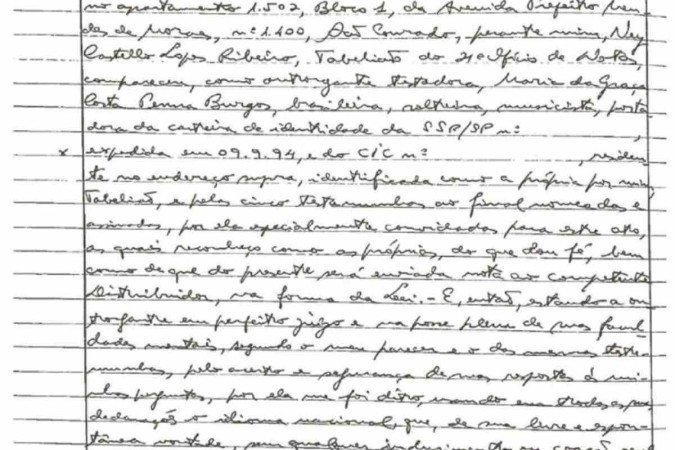 no apartamento 1.502, Bloco 1, da Avenida Prefeito Men
des de Moraes, nº 1.400, São Conrado, perante mim, Ney
Castello Lopes Ribeiro, Tabelião do 21º Ofício de Notas,
compareceu, como outorgante testadora, Maria da Graça
Costa Penna Burgos, brasileira, solteira, musicista, porta
dora da carteira de identidade da SSP/SP nº ,
x expedida em 09.9.94, e do CIC nº , residen
te no endereço supra, identificada como a própria por mim,
Tabelião, e pelas cinco testemunhas ao final nomeadas e
assinadas, por ela especialmente convidadas para este ato,
as quais reconheço como as próprias, do que dou fé, bem
como de que do presente será enviada nota ao competente
Distribuidor, na forma da Lei.- E, então, estando a ou
torgante em perfeito juízo e na posse plena de suas facul
dades mentais, segundo o meu parecer e o das mesmas teste-
munhas, pelo acerto e segurança de suas respostas às mi-
nhas perguntas, por ela me foi dito, usando em todas as suas
declarações o idioma nacional, que, de sua livre e espon-
tânea vontade, sem qualquer induzimento ou coação